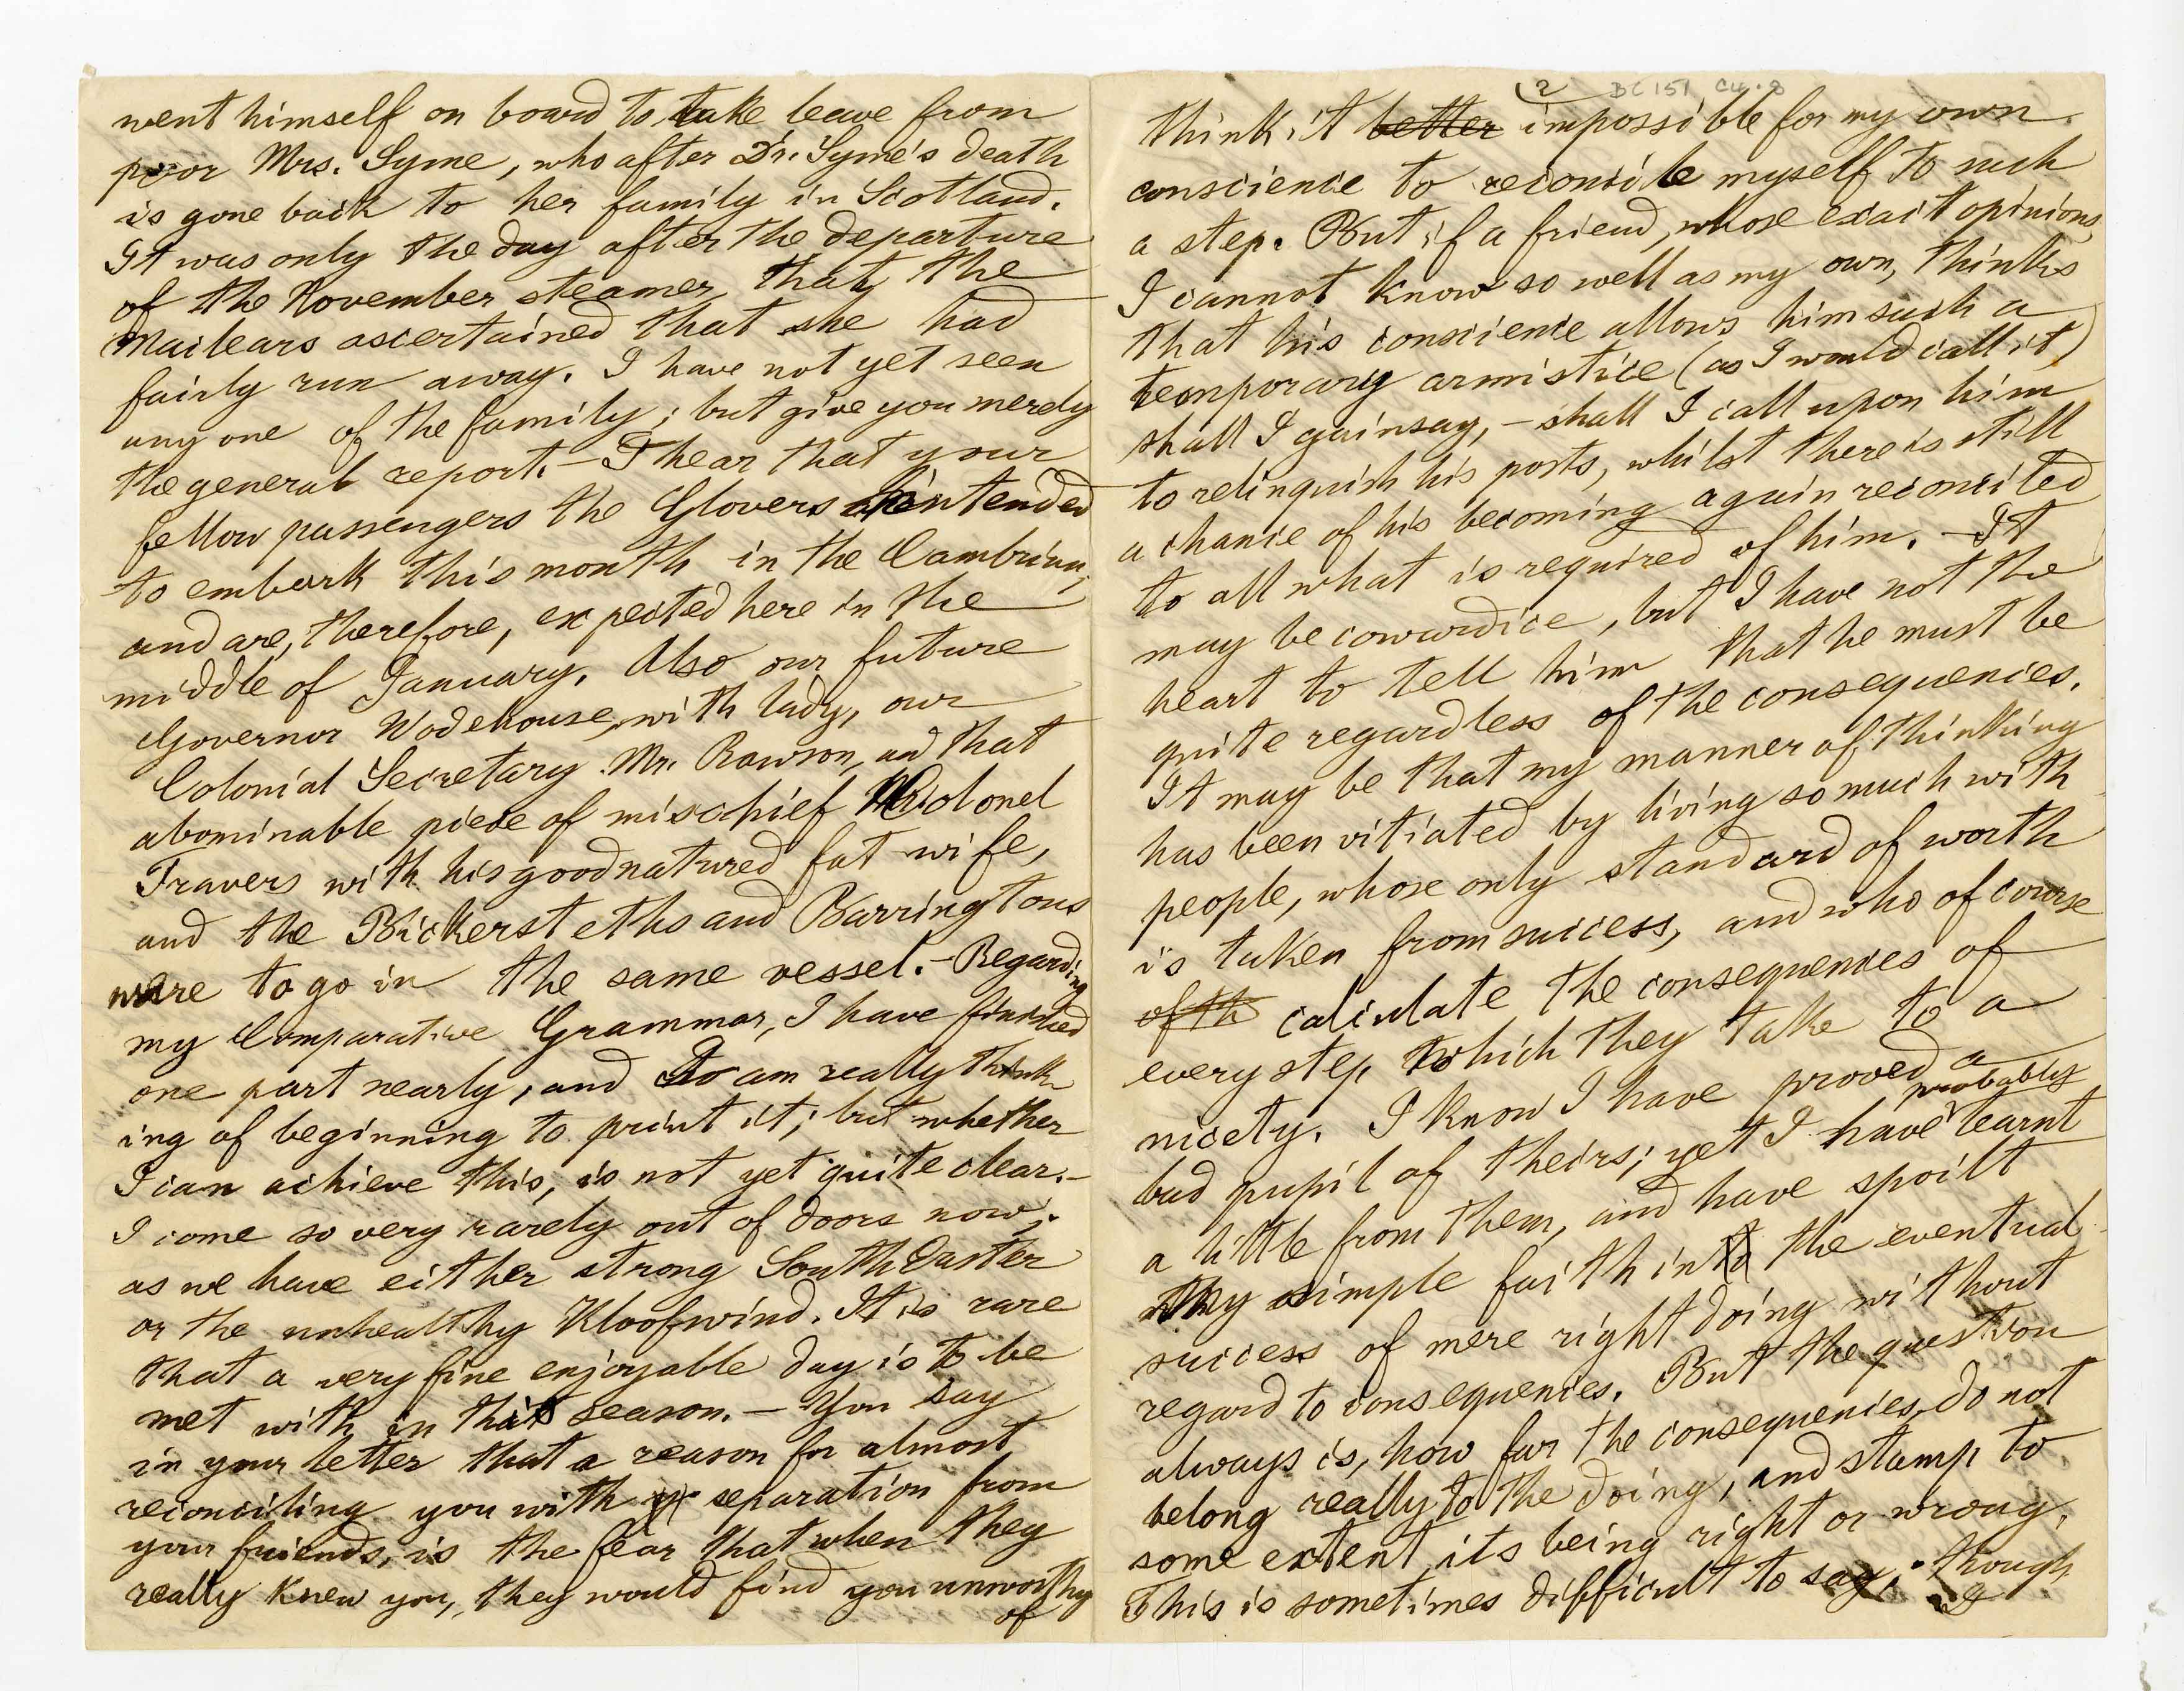 went himself on board to take leave from
poor Mrs. Syme, who after Dr. Syme's death
is gone back to her family in Scotland.
It was only the day after the departure
of the November steamer, that the
Maclears ascertained that she had
fairly run away. I have not yet seen
any one of the family; but give you merely
the general report. — I hear that your
fellow passengers the Glovers intended
to embark this month in the Cambrian,
and are, therefore, expected here in the
middle of January. Also our future
Governor Wodehouse, with lady, our
Colonial Secretary Mr. Rawson, and that
abominable piece of mischief Colonel
Travers with his goodnatured fat wife,
and the Bickersteths and Barringtons
were to go in the same vessel. — Regarding
my Comparative Grammar, I have finished
one part nearly, and am really think-
ing of beginning to print it; but whether
I can achieve this, is not yet quite clear. —
I come so very rarely out of doors now;
as we have either strong South Easter
or the unhealthy Kloofwind. It is rare
that a very fine enjoyable day is to be
met with in this season. — You say
in your letter that a reason for almost
reconciling you with separation from
your friends, is the fear that when they
really knew you, they would find you unworthy
of
(2 BC 151 C4.8
think it better impossible for my own
conscience to reconcile myself to such
a step. But if a friend, whose exact opinions
I cannot know so well as my own, thinks
that his conscience allows him such a
temporary armistice (as I would call it)
shall I gainsay, — shall I call upon him
to relinquish his posts, whilst there is still
a chance of his becoming again reconciled
to all what is required of him. — It
may be cowardice, but I have not the
heart to tell him that he must be
quite regardless of the consequences.
It may be that my manner of thinking
has been vitiated by living so much with
people, whose only standard of worth
is taken from success, and who of course
of th calculate the consequences of
every step which they take to a
nicety. I know I have proved a
bad pupil of theirs; yet I have probably learnt
a little from them, and have spoilt
my simple faith in the eventual
success of mere right doing without
regard to consequences. But the question
always is, how far the consequences do not
belong really to the doing, and stamp to
some extent its being right or wrong.
This is sometimes difficult to say; though